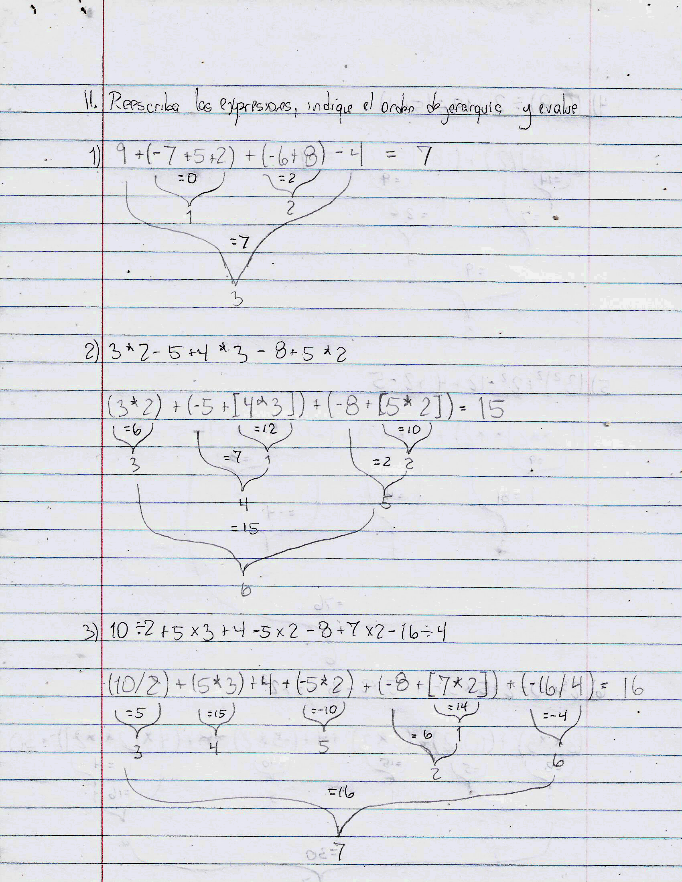 II. Reescriba las expresiones, indique el orden de jerarquia y evalue
1) 9 + (-7 + 5 + 2) + (-6 + 8) - 4 = 7
=0 =2
1 2
=7
3
2) 3 * 2 - 5 + 4 * 3 - 8 + 5 * 2
(3 * 2) + (-5 + [4 * 3]) + (-8 + [5 * 2]) = 15
=6 =12 =10
3 =7 1 =2 2
4 5
=15
6
3) 10 ÷ 2 + 5 × 3 + 4 - 5 × 2 - 8 + 7 × 2 - 16 ÷ 4
(10/2) + (5 * 3) + 4 + (-5 * 2) + (-8 + [7 * 2]) + (-16/4) = 16
=5 =15 =-10 =14 =-4
3 4 5 =6 1 6
2
=16
7